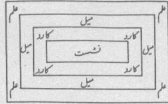 علم میل علم
کارد کارد
میل نشست میل
کارد کارد
علم میل علم